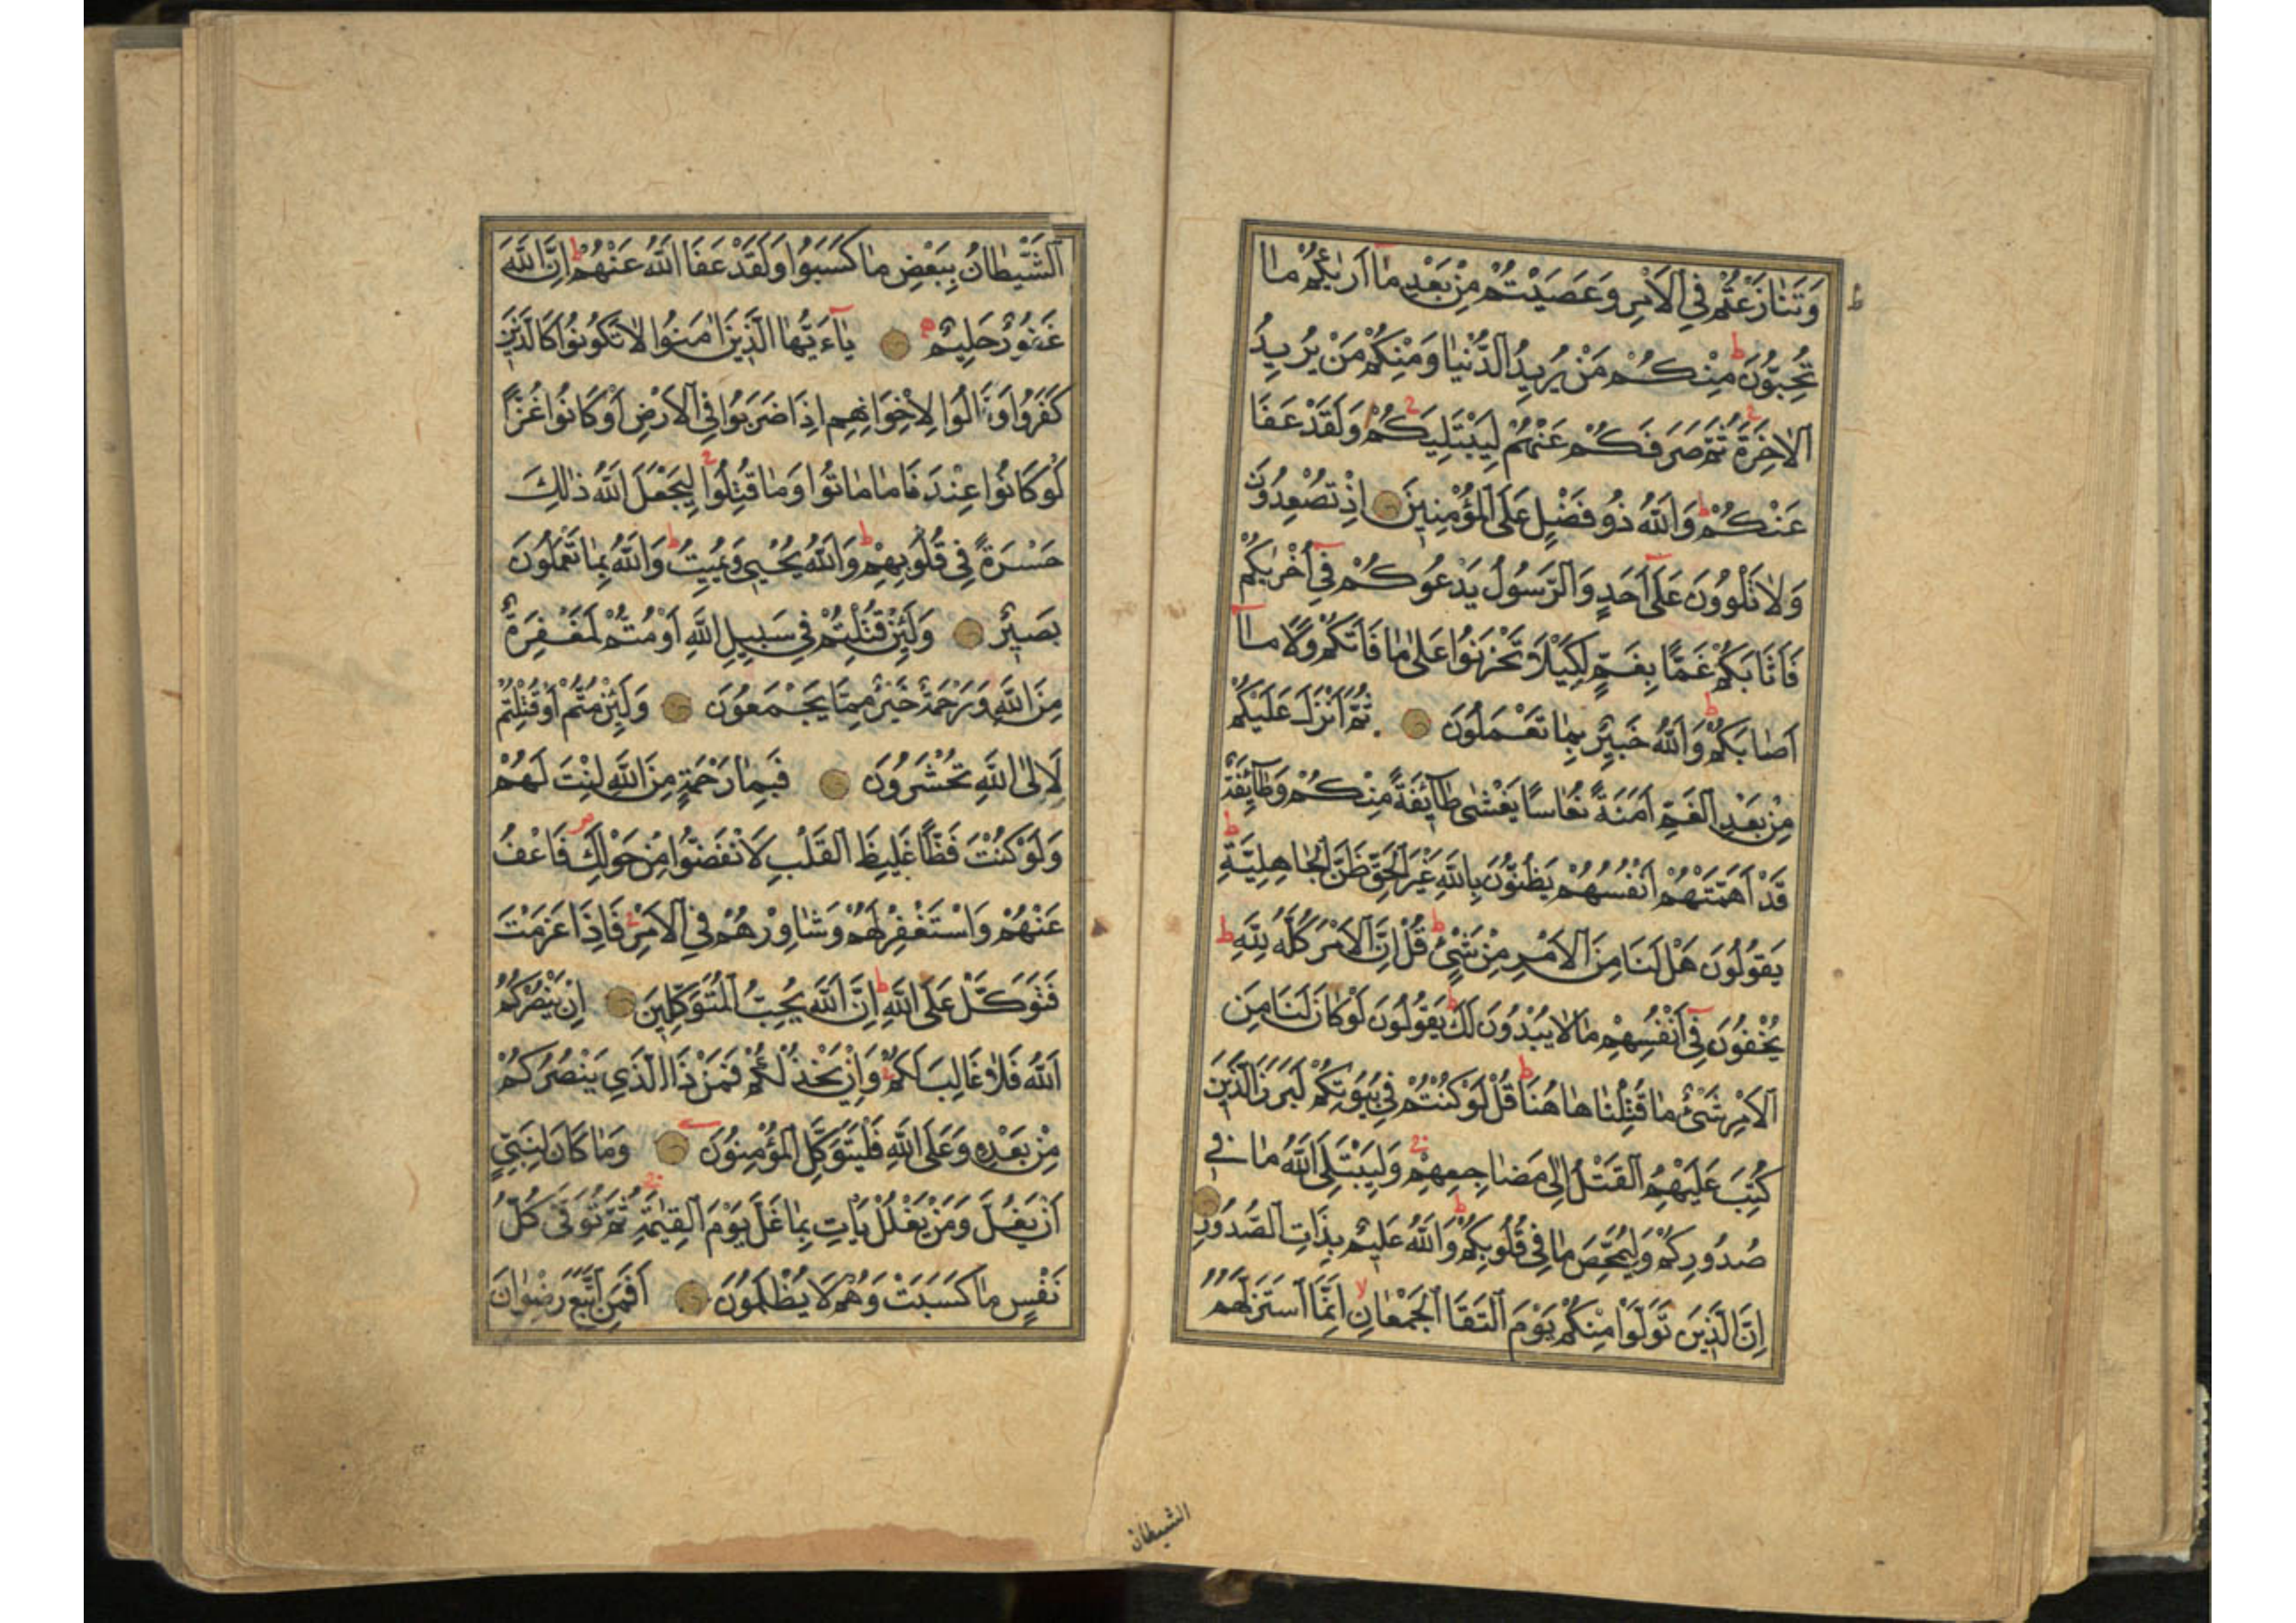 وَتَنَازَعْتُمْ فِي الْاَمْرِ وَعَصَيْتُمْ مِنْ بَعْدِ مَا اَرٰيكُمْ مَا
تُحِبُّونَ ط مِنْكُمْ مَنْ يُرِيدُ الدُّنْيَا وَمِنْكُمْ مَنْ يُرِيدُ
الْاٰخِرَةَ ثُمَّ صَرَفَكُمْ عَنْهُمْ لِيَبْتَلِيَكُمْ وَلَقَدْ عَفَا
عَنْكُمْ ط وَاللّٰهُ ذُو فَضْلٍ عَلَى الْمُؤْمِنِينَ اِذْ تُصْعِدُونَ
وَلَا تَلْوُونَ عَلٰى اَحَدٍ وَالرَّسُولُ يَدْعُوكُمْ فِي اُخْرٰيكُمْ
فَاَثَابَكُمْ غَمًّا بِغَمٍّ لِكَيْلَا تَحْزَنُوا عَلٰى مَا فَاتَكُمْ وَلَا مَا
اَصَابَكُمْ ط وَاللّٰهُ خَبِيرٌ بِمَا تَعْمَلُونَ ثُمَّ اَنْزَلَ عَلَيْكُمْ
مِنْ بَعْدِ الْغَمِّ اَمَنَةً نُعَاسًا يَغْشٰى طَائِفَةً مِنْكُمْ وَطَائِفَةٌ
قَدْ اَهَمَّتْهُمْ اَنْفُسُهُمْ يَظُنُّونَ بِاللّٰهِ غَيْرَ الْحَقِّ ظَنَّ الْجَاهِلِيَّةِ ط
يَقُولُونَ هَلْ لَنَا مِنَ الْاَمْرِ مِنْ شَيْءٍ ط قُلْ اِنَّ الْاَمْرَ كُلَّهُ لِلّٰهِ ط
يُخْفُونَ فِي اَنْفُسِهِمْ مَا لَا يُبْدُونَ لَكَ ط يَقُولُونَ لَوْ كَانَ لَنَا مِنَ
الْاَمْرِ شَيْءٌ مَا قُتِلْنَا هَاهُنَا ط قُلْ لَوْ كُنْتُمْ فِي بُيُوتِكُمْ لَبَرَزَ الَّذِينَ
كُتِبَ عَلَيْهِمُ الْقَتْلُ اِلٰى مَضَاجِعِهِمْ وَلِيَبْتَلِيَ اللّٰهُ مَا فِي
صُدُورِكُمْ وَلِيُمَحِّصَ مَا فِي قُلُوبِكُمْ ط وَاللّٰهُ عَلِيمٌ بِذَاتِ الصُّدُورِ
اِنَّ الَّذِينَ تَوَلَّوْا مِنْكُمْ يَوْمَ الْتَقَا الْجَمْعَانِ لا اِنَّمَا اسْتَزَلَّهُمُ
الشيطان
الشَّيْطَانُ بِبَعْضِ مَا كَسَبُوا وَلَقَدْ عَفَا اللّٰهُ عَنْهُمْ ط اِنَّ اللّٰهَ
غَفُورٌ حَلِيمٌ يَاءَيُّهَا الَّذِينَ اٰمَنُوا لَا تَكُونُوا كَالَّذِينَ
كَفَرُوا وَقَالُوا لِاِخْوَانِهِمْ اِذَا ضَرَبُوا فِي الْاَرْضِ اَوْ كَانُوا غُزًّا
لَوْ كَانُوا عِنْدَنَا مَا مَاتُوا وَمَا قُتِلُوا لِيَجْعَلَ اللّٰهُ ذٰلِكَ
حَسْرَةً فِي قُلُوبِهِمْ ط وَاللّٰهُ يُحْيِي وَيُمِيتُ ط وَاللّٰهُ بِمَا تَعْمَلُونَ
بَصِيرٌ وَلَئِنْ قُتِلْتُمْ فِي سَبِيلِ اللّٰهِ اَوْ مُتُّمْ لَمَغْفِرَةٌ
مِنَ اللّٰهِ وَرَحْمَةٌ خَيْرٌ مِمَّا يَجْمَعُونَ وَلَئِنْ مُتُّمْ اَوْ قُتِلْتُمْ
لَاِلٰى اللّٰهِ تُحْشَرُونَ فَبِمَا رَحْمَةٍ مِنَ اللّٰهِ لِنْتَ لَهُمْ
وَلَوْ كُنْتَ فَظًّا غَلِيظَ الْقَلْبِ لَانْفَضُّوا مِنْ حَوْلِكَ فَاعْفُ
عَنْهُمْ وَاسْتَغْفِرْ لَهُمْ وَشَاوِرْهُمْ فِي الْاَمْرِ فَاِذَا عَزَمْتَ
فَتَوَكَّلْ عَلَى اللّٰهِ ط اِنَّ اللّٰهَ يُحِبُّ الْمُتَوَكِّلِينَ اِنْ يَنْصُرْكُمُ
اللّٰهُ فَلَا غَالِبَ لَكُمْ وَاِنْ يَخْذُلْكُمْ فَمَنْ ذَا الَّذِي يَنْصُرُكُمْ
مِنْ بَعْدِهِ وَعَلَى اللّٰهِ فَلْيَتَوَكَّلِ الْمُؤْمِنُونَ وَمَا كَانَ لِنَبِيٍّ
اَنْ يَغُلَّ وَمَنْ يَغْلُلْ يَأْتِ بِمَا غَلَّ يَوْمَ الْقِيٰمَةِ ثُمَّ تُوَفّٰى كُلُّ
نَفْسٍ مَا كَسَبَتْ وَهُمْ لَا يُظْلَمُونَ اَفَمَنِ اتَّبَعَ رِضْوَانَ